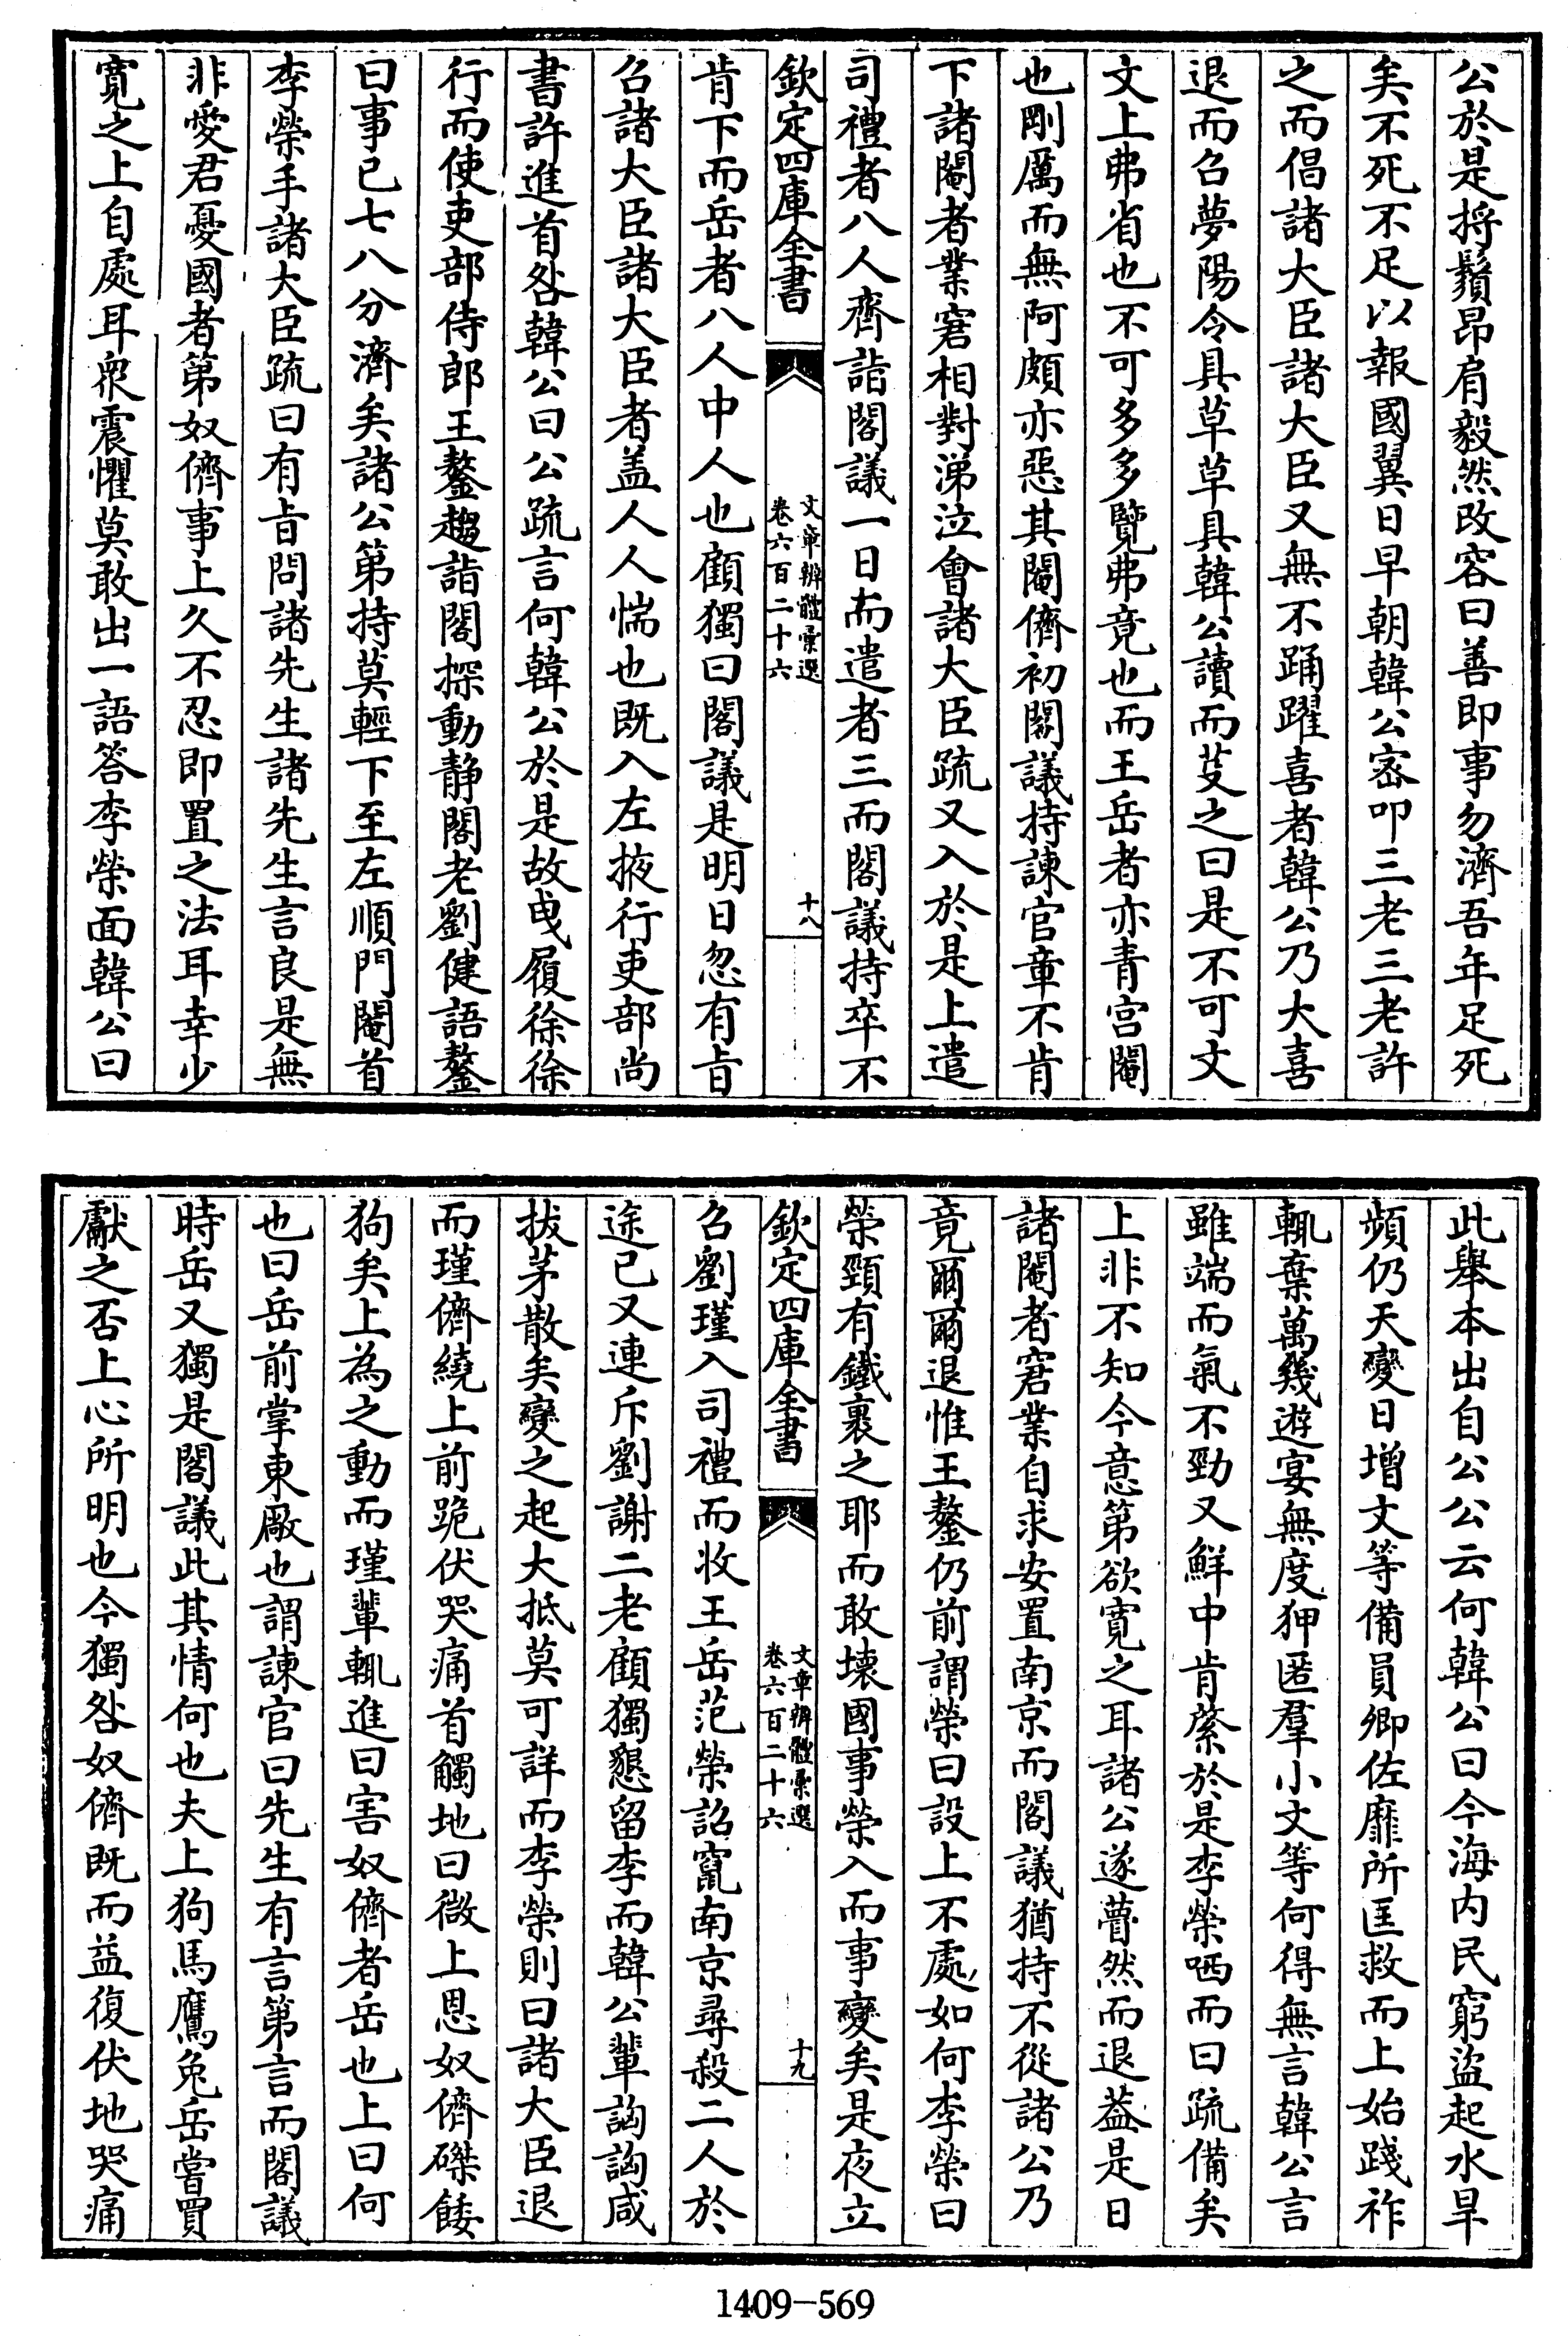 公於是捋鬚昂肩毅然改容曰善即事勿濟吾年足死
矣不死不足以報國翼日早朝韓公宻叩三老三老許
之而倡諸大臣諸大臣又無不踊躍喜者韓公乃大喜
退而召夢陽令具草草具韓公讀而芟之曰是不可文
文上弗省也不可多多覽弗竟也而王岳者亦青宮閹
也剛厲而無阿頗亦惡其閹儕初閣議持諫官章不肯
下諸閹者業窘相對涕泣會諸大臣疏又入於是上遣
司禮者八人齊詣閣議一日而遣者三而閣議持卒不
欽定四庫全書
文章辨體彚選
卷六百二十六
十八
肯下而岳者八人中人也顧獨曰閣議是明日忽有旨
召諸大臣諸大臣者盖人人惴也既入左掖行吏部尚
書許進首咎韓公曰公疏言何韓公於是故曵履徐徐
行而使吏部侍郎王鏊趨詣閣探動靜閣老劉健語鏊
曰事已七八分濟矣諸公第持莫輕下至左順門閹首
李榮手諸大臣疏曰有旨問諸先生諸先生言良是無
非愛君憂國者第奴儕事上久不忍即置之法耳幸少
寛之上自處耳衆震懼莫敢出一語答李榮面韓公曰
此舉本出自公公云何韓公曰今海内民窮盗起水旱
頻仍天變日增文等備員卿佐靡所匡救而上始踐祚
輒棄萬幾遊宴無度狎匿羣小文等何得無言韓公言
雖端而氣不勁又鮮中肯綮於是李榮哂而曰疏備矣
上非不知今意第欲寛之耳諸公遂薨然而退葢是日
諸閹者窘業自求安置南京而閣議猶持不從諸公乃
竟爾爾退惟王鏊仍前謂榮曰設上不處如何李榮曰
榮頸有鐵裹之耶而敢壊國事榮入而事變矣是夜立
欽定四庫全書
文章辨體彚選
卷六百二十六
十九
召劉瑾入司禮而收王岳范榮詔竄南京尋殺二人於
途已又連斥劉謝二老顧獨懇留李而韓公輩詾詾咸
拔茅散矣變之起大抵莫可詳而李榮則曰諸大臣退
而瑾儕繞上前跪伏哭痛首觸地曰微上恩奴儕磔餧
狗矣上為之動而瑾輩輒進曰害奴儕者岳也上曰何
也曰岳前掌東厰也謂諫官曰先生有言第言而閣議
時岳又獨是閣議此其情何也夫上狗馬鷹兔岳嘗買
獻之否上心所明也今獨咎奴儕既而益復伏地哭痛
1409-569